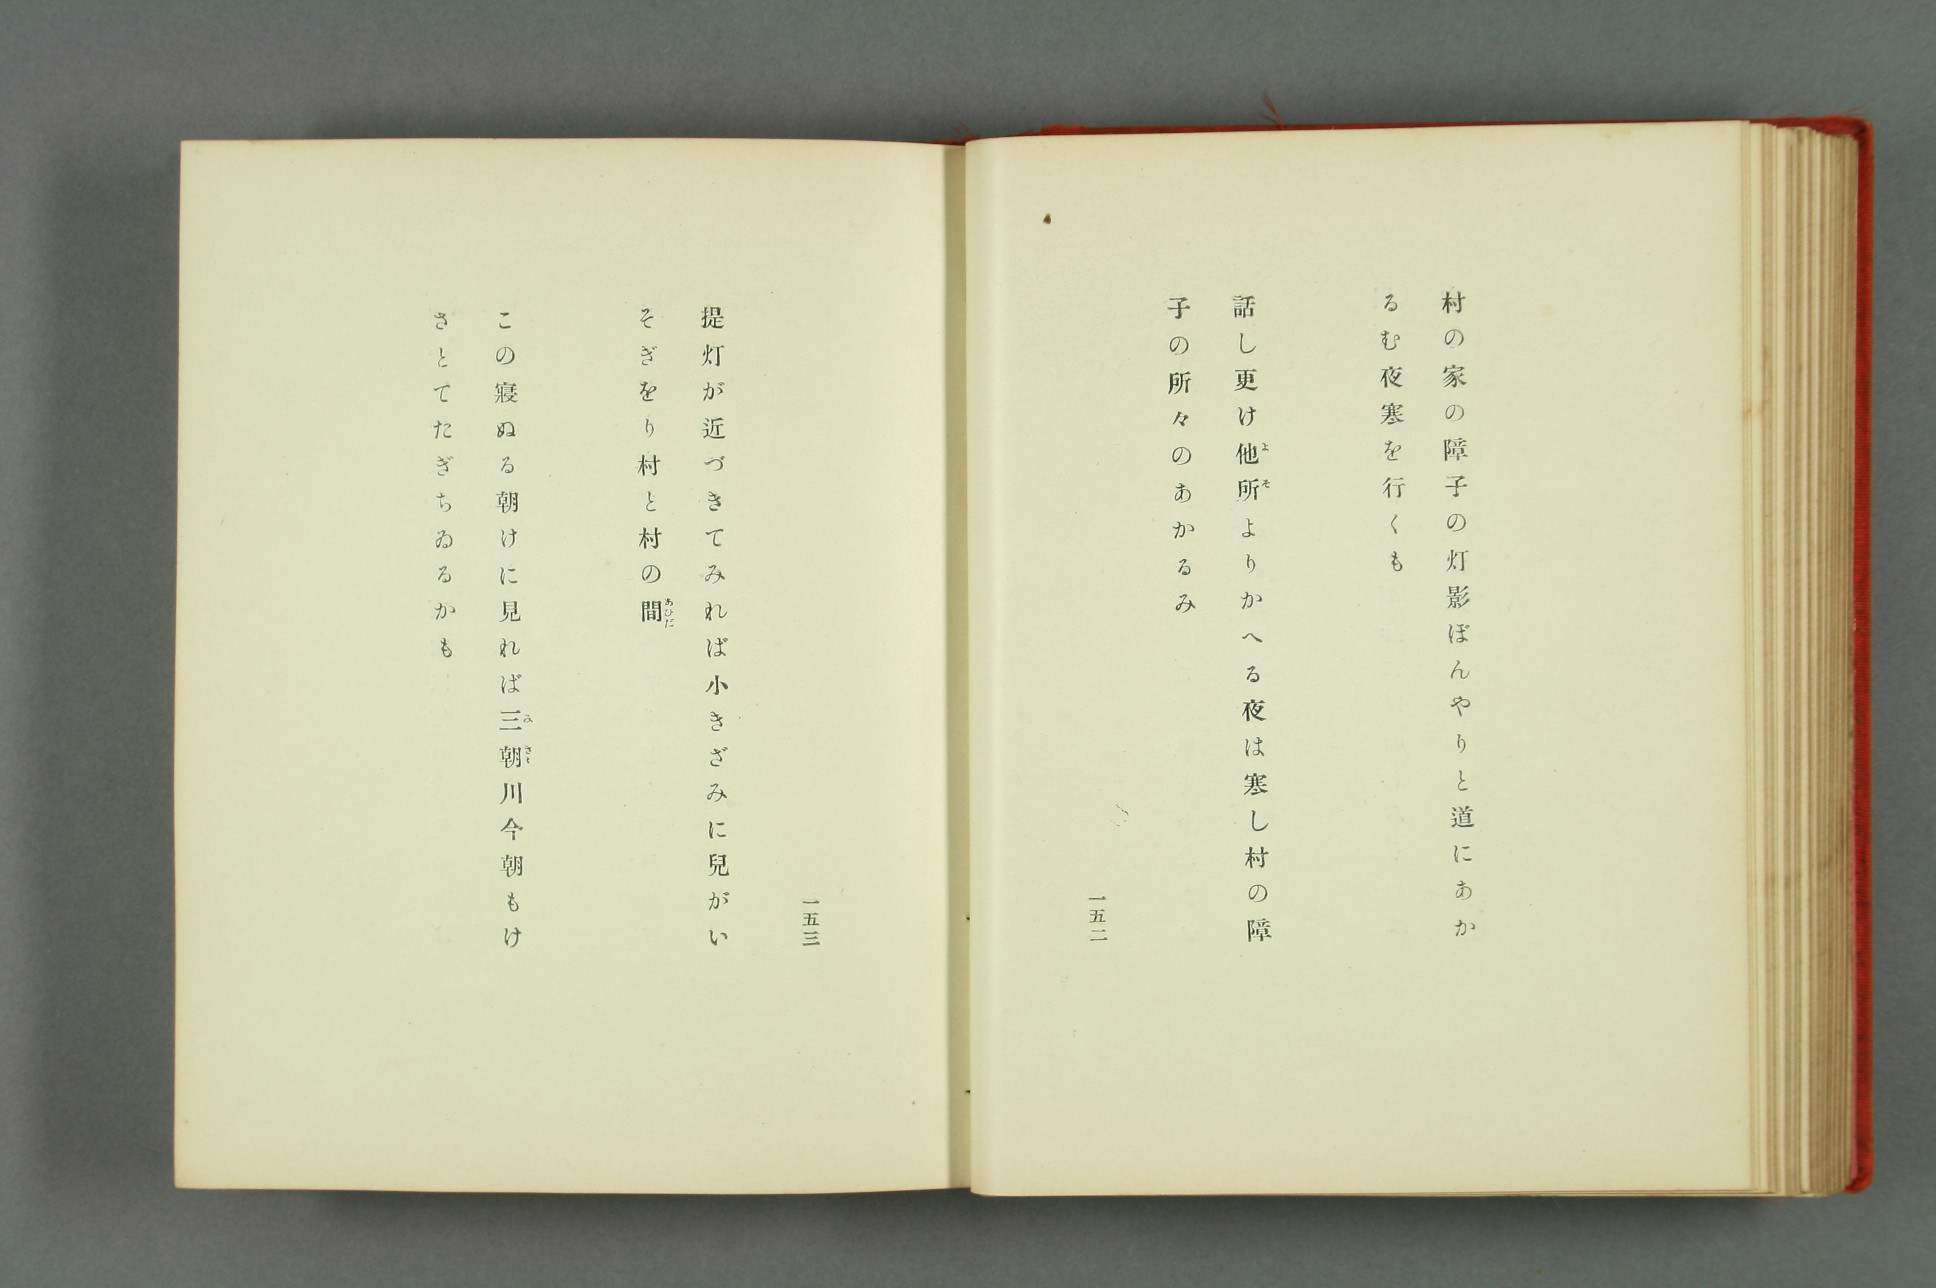 村の家の障子の灯影ぼんやりと道にあか
るむ夜寒を行くも
話し更け他所よりかへる夜は寒し村の障
よそ
子の所々のあかるみ
一五二
提灯が近づきてみれば小きざみに兒がい
そぎをり村と村の間
あひだ
この寢ぬる朝けに見れば三朝川今朝もけ
みさゝ
さとてたぎちゐるかも
一五三